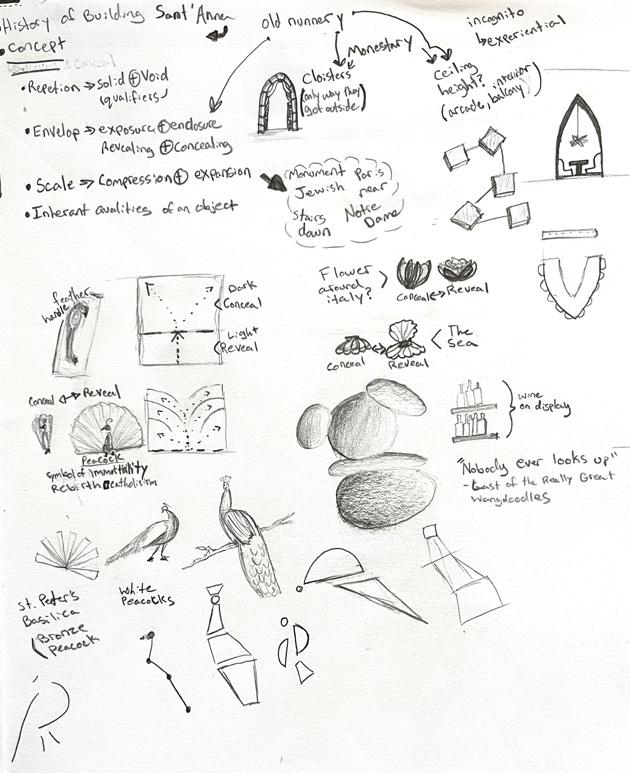 History of Building Sant'Anna
old nunnery
incognito
↳ experiential
• Concept
Conceal
Monestary
• Repetion ⇒ solid ⊕ Void
(qualifiers)
Cloisters
(only way they
got outside)
Ceiling
height? interior
(arcade, balcony)
• Envelop ⇒ exposure ⊕ enclosure
Revealing ⊕ Concealing
• Scale ⇒ Compression ⊕ expansion
• Inherant Qualities of an object
Monument Paris
Jewish near
Stairs Notre
down Dame
feather
handle
Dark
Conceal
Light
Reveal
Flower
around
italy?
Conceal ↔ Reveal
The
Sea
Conceal Reveal
Conceal ↔ Reveal
Peacock
symbol of immortality
Rebirth Catholisism
wine
on display
"Nobody ever looks up"
- Last of the Really Great
Wangdoodles
St. Peter's
Basilica
(Bronze
Peacock
White
Peacocks